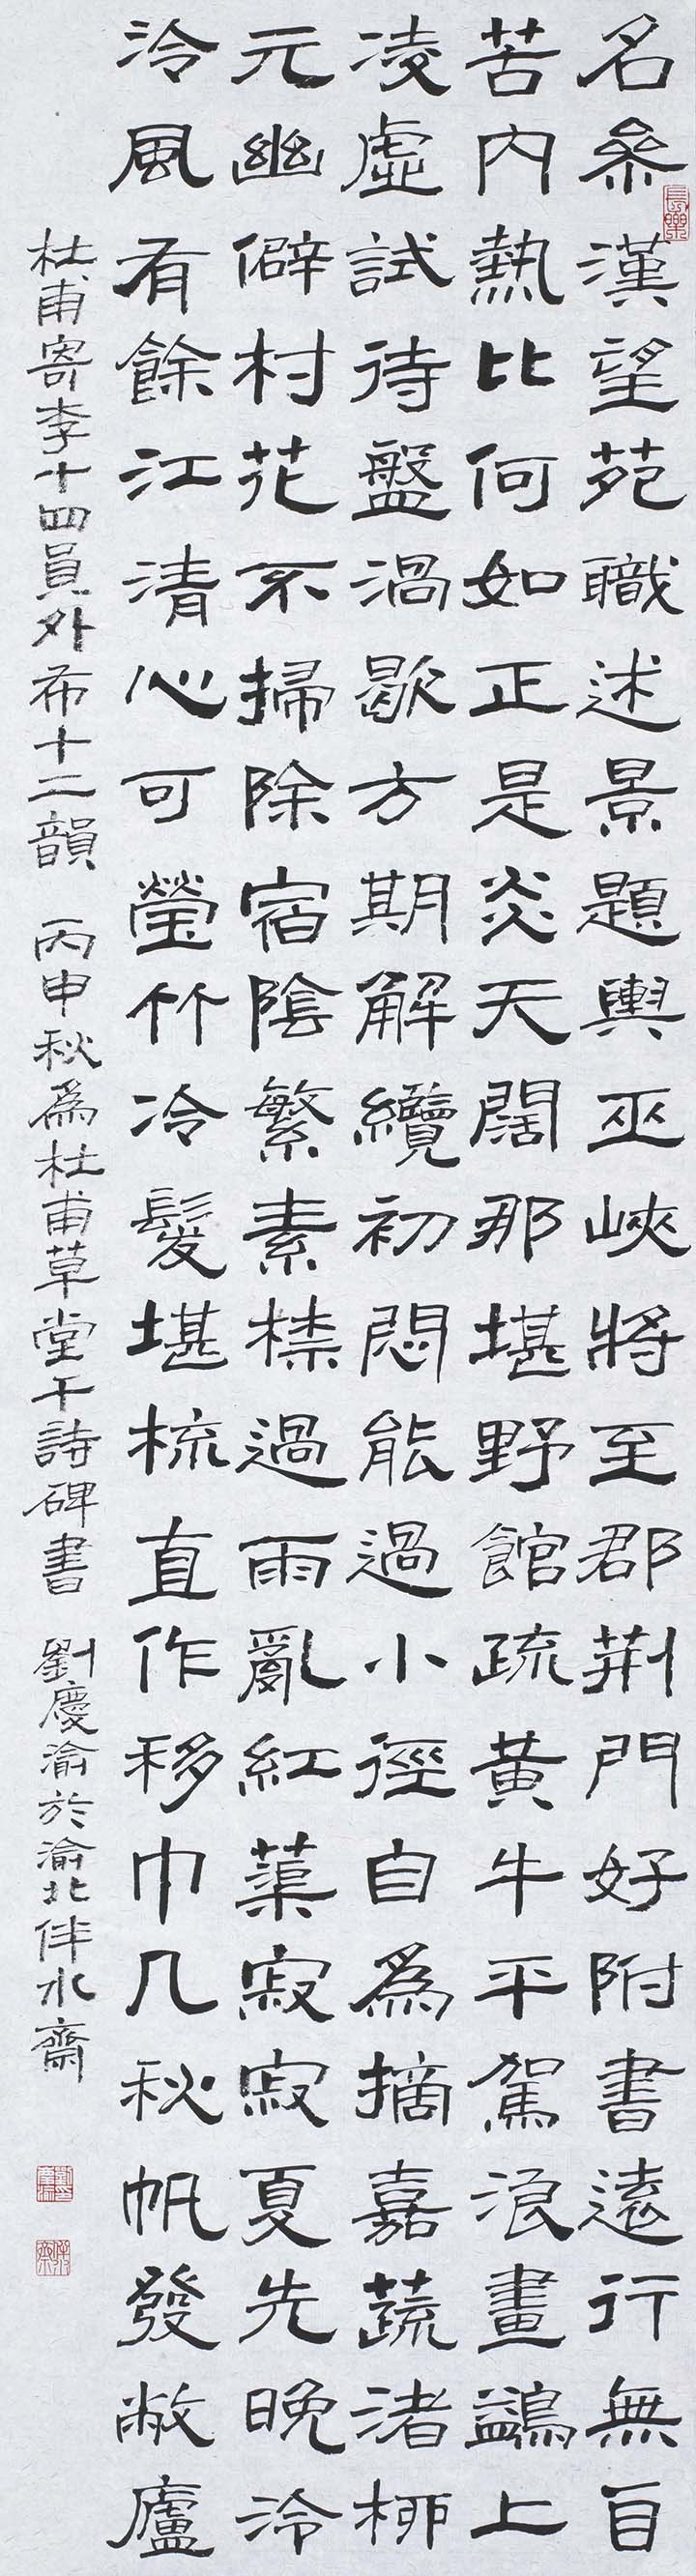 名參漢望苑職述景題輿巫峽將至郡荆門好附書遠行無自
苦內熱比何如正是炎天闊那堪野館疏黃牛平駕浪畫鷁上
凌虛試待盤渦歇方期解纜初悶能過小徑自為摘嘉蔬渚柳
元幽僻村花不掃除宿陰繁素柰過雨亂紅蕖寂寂夏先晚泠
泠風有餘江清心可瑩竹冷髮堪梳直作移巾几秋帆發敝廬
杜甫寄李十四員外布十二韻 丙申秋為杜甫草堂千詩碑書 劉慶渝於渝北伴水齋
長樂